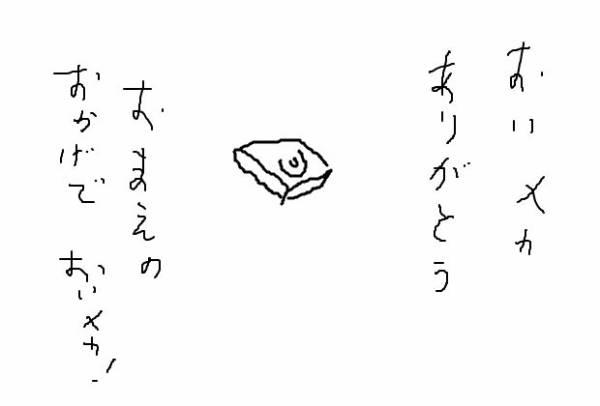 おい メカ
ありがとう
おまえの
おかげで おいメカ!